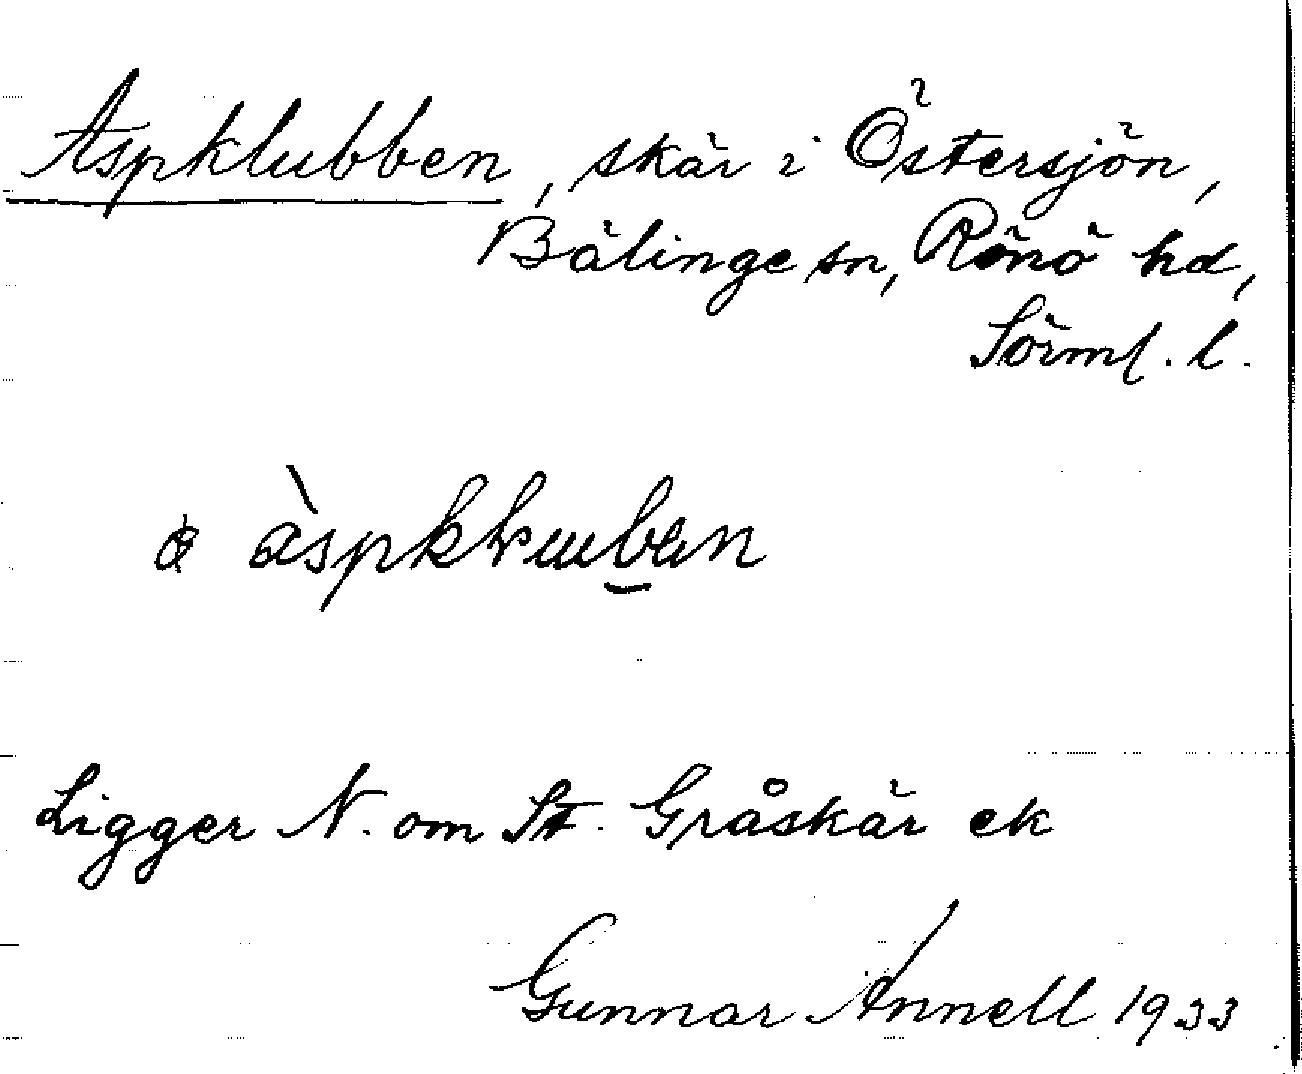 Aspklubben, skär i Östersjön,
Bälinge sn, Rönö hd,
Sörml. l.
Ligger N. om St. Gråskär ek
Gunnar Annell 1933